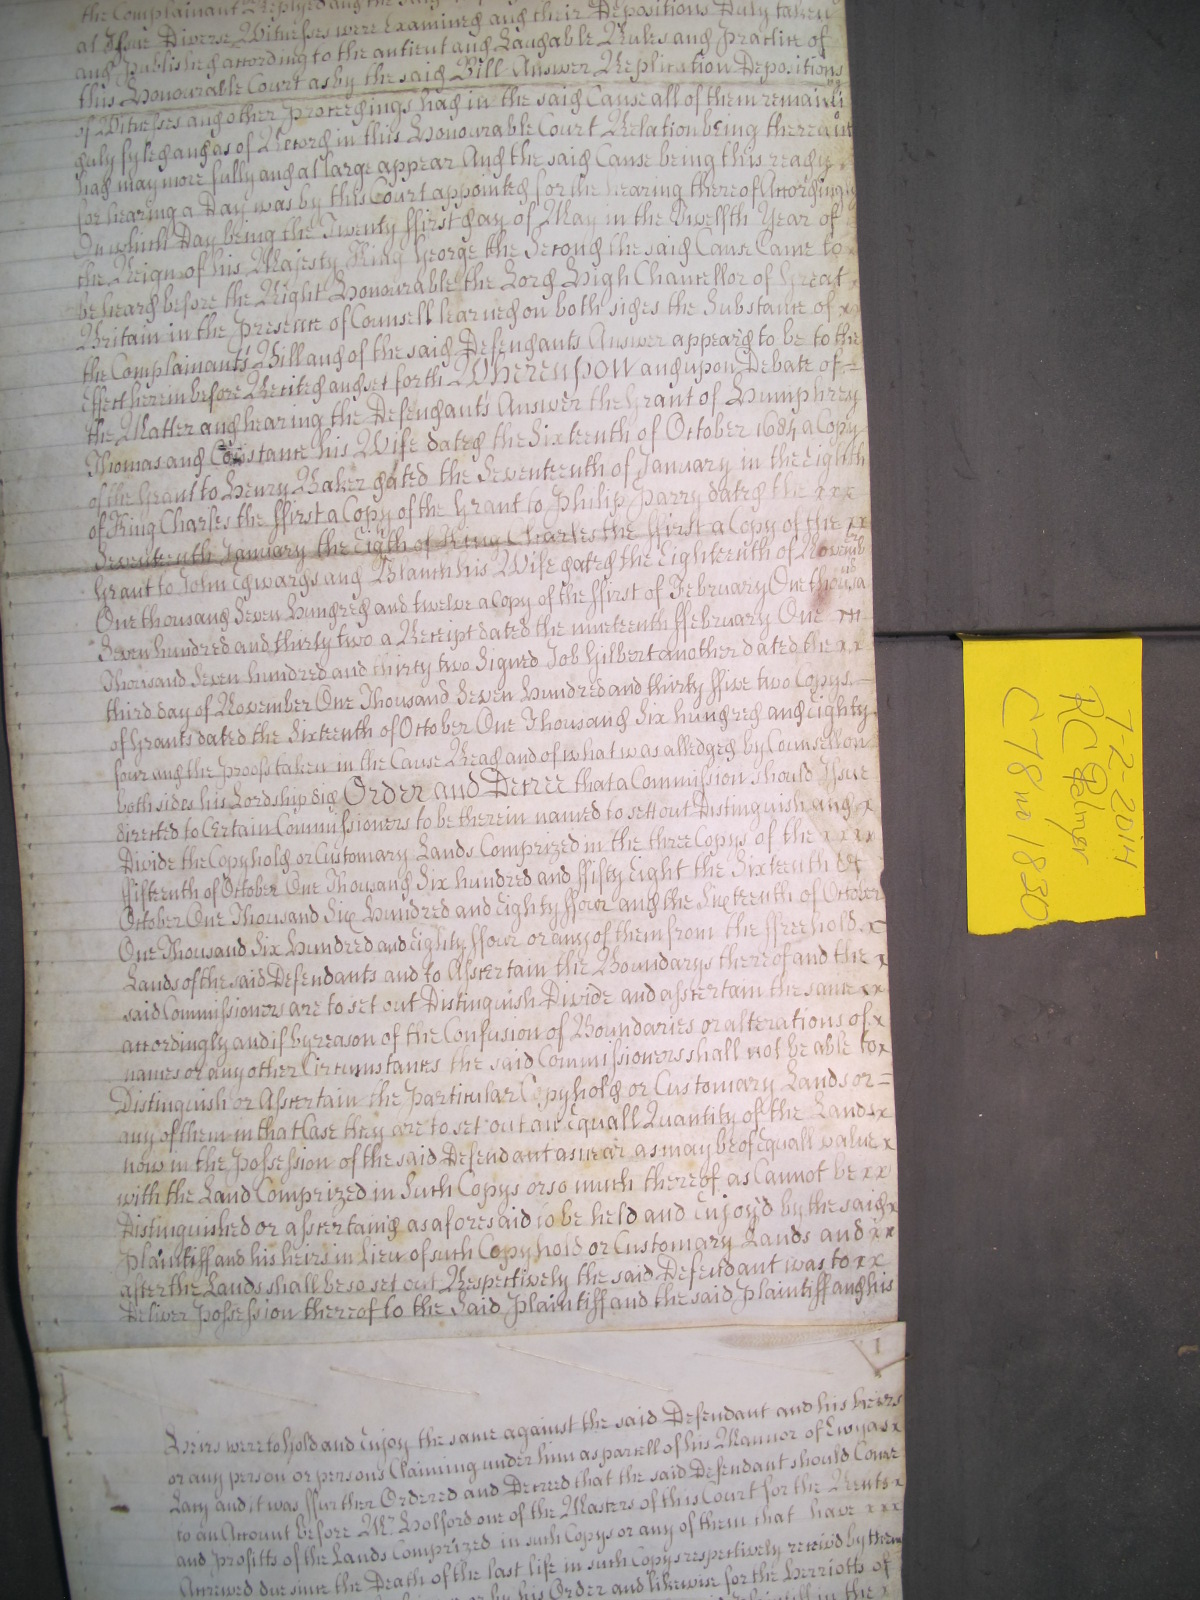 the Complainant Replyed and the
at Issue Diverse Witnesses were Examined and their Depositions Duly taken
and Published according to the antient and Laudable Rules and Practice of
this Honourable Court as by the said Bill Answer Replication Depositions
of Witnesses and other Proceedings had in the said Cause all of them remaining
duly fyled and as of Record in this Honourable Court Relation being thereunto
had may more fully and at large appear And the said Cause being thus ready x
for hearing a Day was by this Court appointed for the hearing thereof According
On which Day being the Twenty ffirst day of May in the Twelfth Year of
the Reign of his Majesty King George the Second the said Cause Came to
be heard before the Right Honourable the Lord High Chancellor of Great x
Britain in the Presence of Counsell learned on both sides the Substance of x
the Complainants Bill and of the said Defendants Answer appeard to be to the
Effect herein before Recited and set forth Whereupon and upon Debate of
the Matter and hearing the Defendants Answer the Grant of Humphrey
Thomas and Constance his Wife dated the Sixteenth of October 1684 a Copy
of the Grant to Henry Baker dated the Seventeenth of January in the Eighth
of King Charles the ffirst a Copy of the Grant to Philip Parry dated the x x x
Seventeenth January the Eigth of King Charles the ffirst a Copy of the x x
Grant to John Edwards and Blanch his Wife dated the Eighteenth of Novemb
One thousand Seven Hundred and twelve a Copy of the ffirst of February One thousa
Seven hundred and thirty two a Receipt dated the nineteenth ffebruary One
Thousand Seven hundred and thirty two Signed Job Gilbert another dated the x x
third day of November One Thousand Seven Hundred and thirty ffive two Copys
of Grants dated the Sixteenth of October One Thousand Six hundred and Eighty
four and the Proofs taken in the Cause Read and of what was alledged by Counsell on
both sides his Lordship did Order and Decree that a Commission should Issue
directed to Certain Commissioners to be therein named to sett out Distinguish and x
Divide the Copyhold or Customary Lands Comprized in the three Copys of the x x x x
ffifteenth of October One Thousand Six hundred and ffifty Eight the Sixteenth of
October One Thousand Six Hundred and Eighty ffour and the Sixteenth of October
One Thousand Six Hundred and Eighty ffour or any of them from the ffreehold x
Lands of the said Defendants and to Assertain the Boundarys thereof and the x
said Commissioners are to set out Distinguish Divide and assertain the same x x
accordingly and if by reason of the Confusion of Boundaries or alterations of x
names or any other Circumstances the said Commissioners shall not be able to x
Distinguish or Assertain the Particular Copyhold or Customary Lands or =
any of them in that Case they are to set out an Equall Quantity of the Lands x
now in the Possession of the said Defendant as near as may be of Equall value x
with the Land Comprized in Such Copys or so much thereof as Cannot be x x
Distinguished or assertaind as aforesaid to be held and Enjoy'd by the said x
Plaintiff and his heirs in lieu of such Copyhold or Customary Lands and x x
after the Lands shall be so set out Respectively the said Defendant was to x x
Deliver Possession thereof to the Said Plaintiff and the said Plaintiff and his
1
heirs were to hold and Enjoy the same against the said Defendant and his heirs
or any person or persons Claiming under him as parcell of his Mannor of Ewyas x
Lacy and it was ffurther Ordered and Decreed that the said Defendant should Come
to an Account before Mr Holford one of the Masters of this Court for the Rents x
and Profitts of the Lands Comprized in such Copys or any of them that have x x x
Accrewed due since the Death of the last life in such Copys respectively receivd by them
or by his Order and likewise for the Herriotts of
in the x
7-2-2014
RC Palmer
C78 no 1830